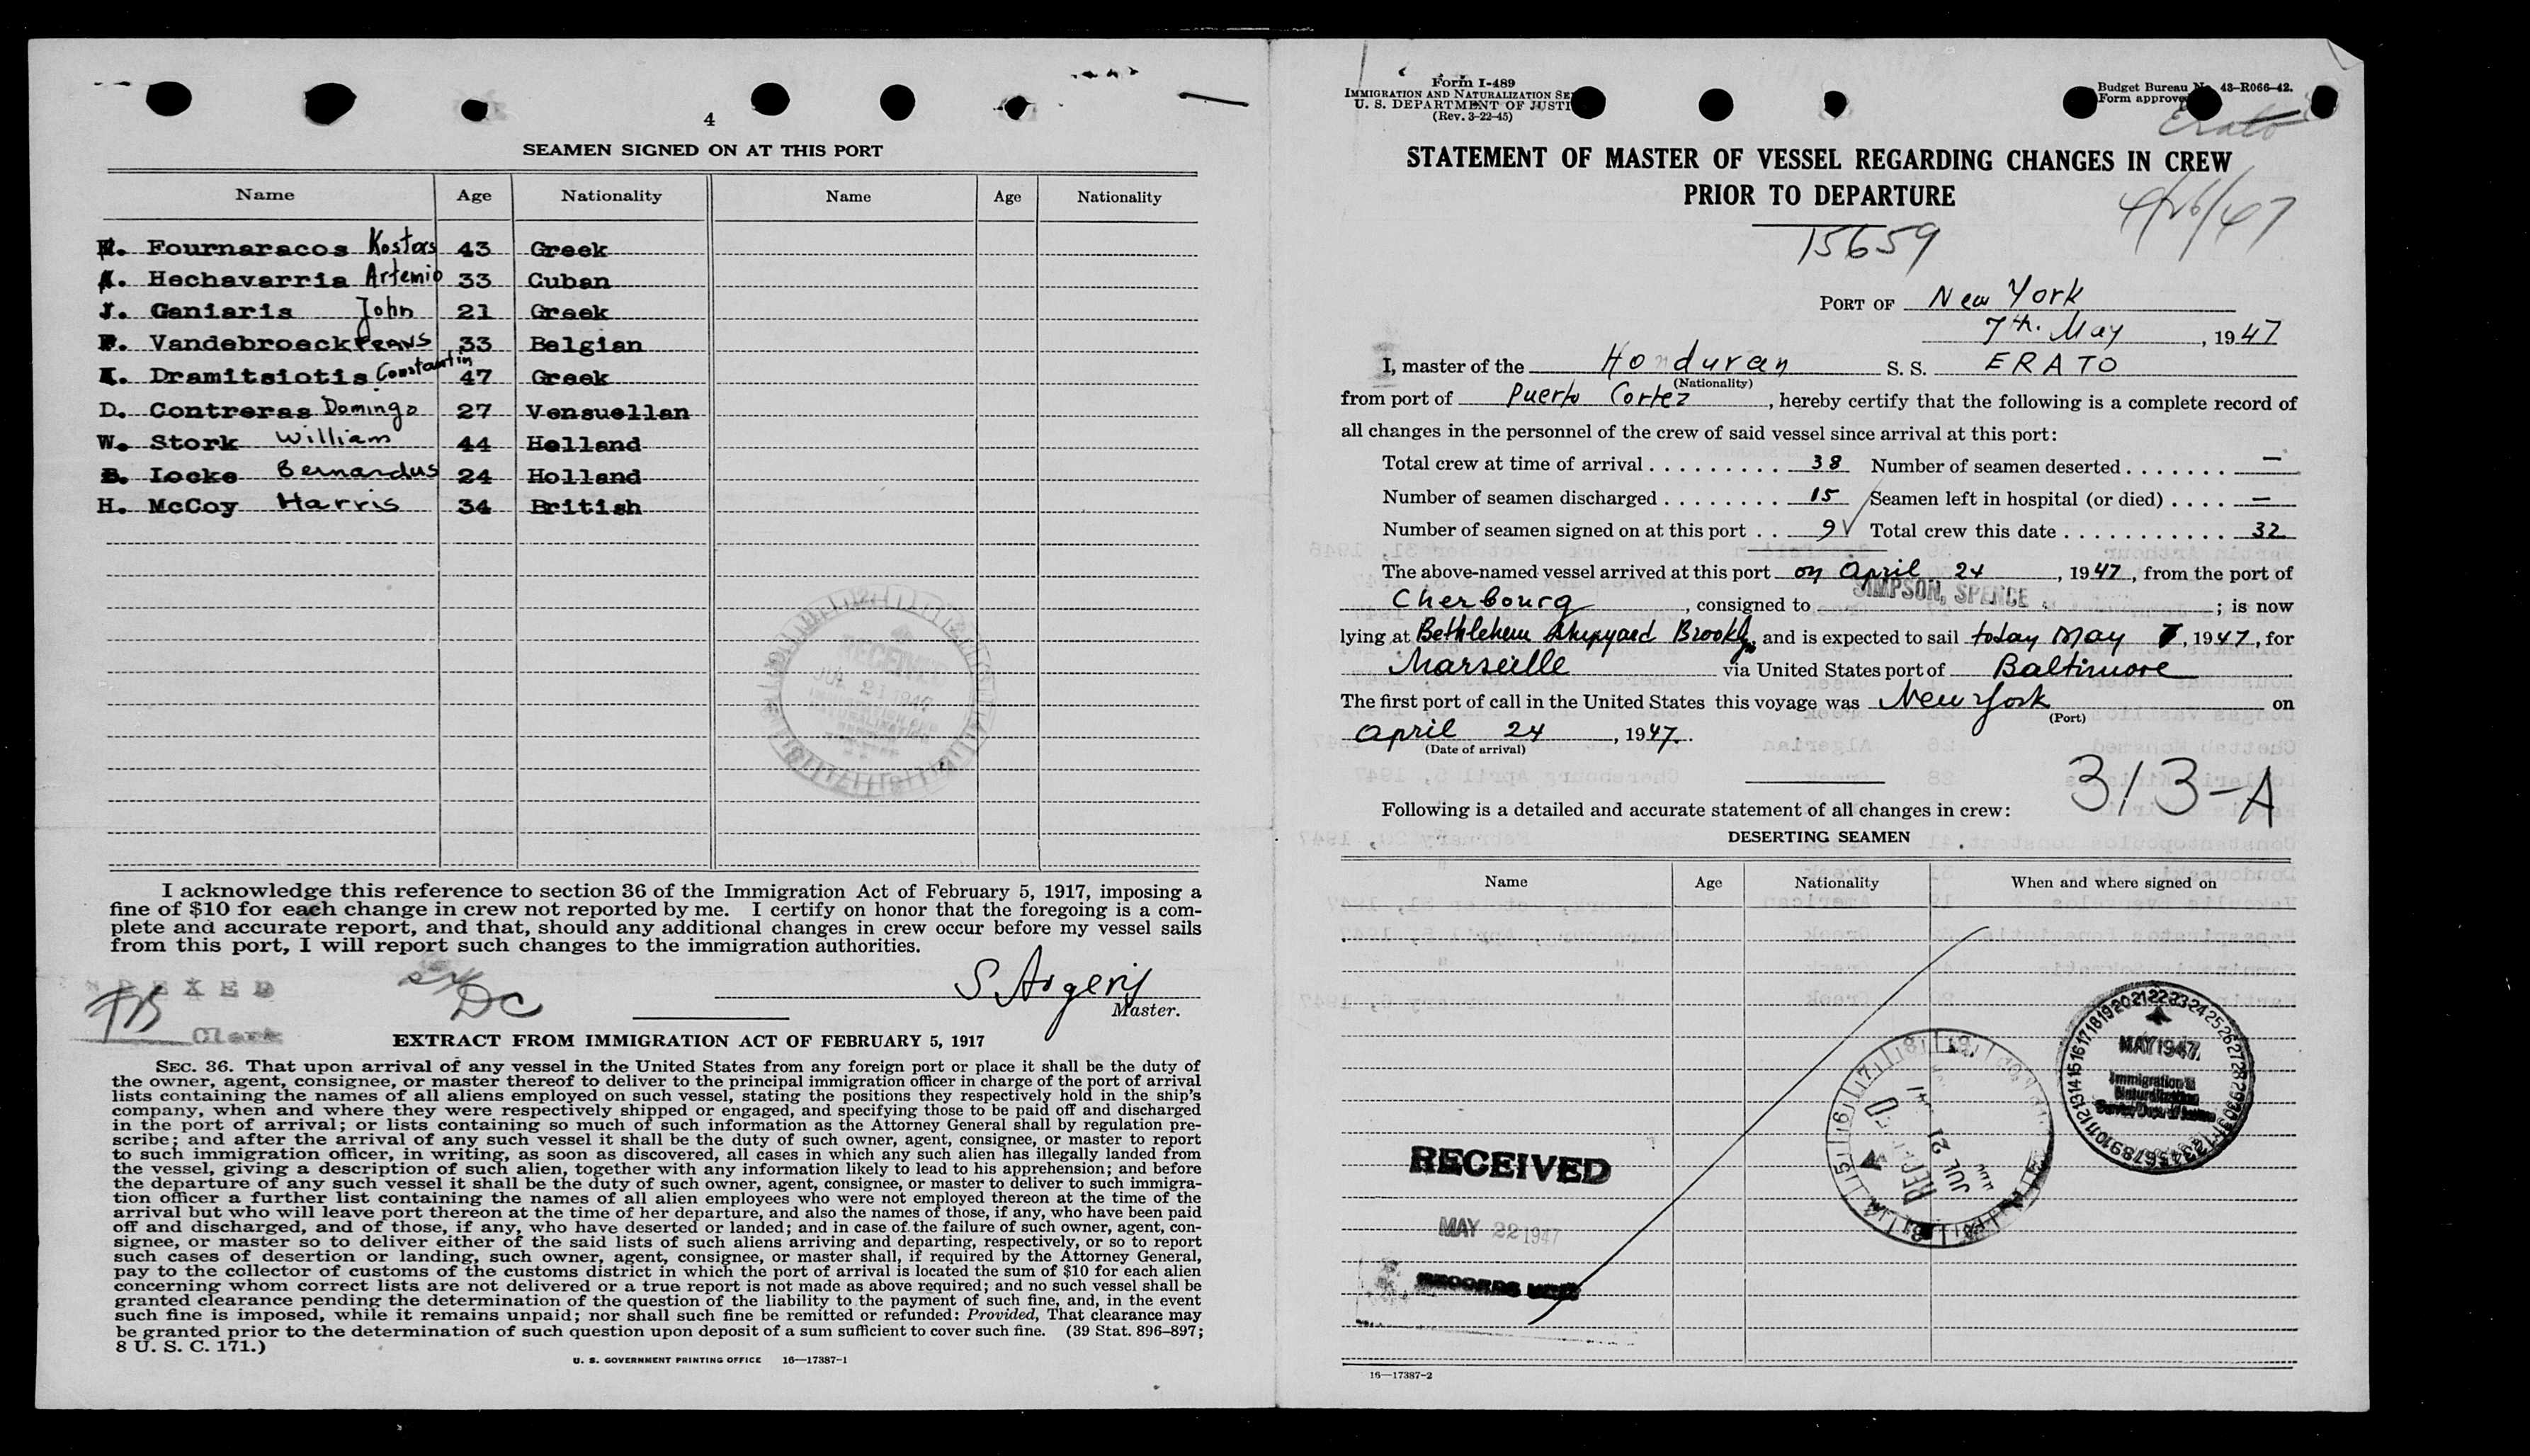 4
SEAMEN SIGNED ON AT THIS PORT
Name Age Nationality Name Age Nationality
Fournaracos Kostas 43 Greek
A. Hechavarria Artemio 33 Cuban
J. Ganiaris John 21 Greek
F. Vandebroeck FRANS 33 Belgian
Dramitsiotis Constantin 47 Greek
D. Contreras Domingo 27 Vensuellan
W. Stork William 44 Holland
B. Locke Bernardus 24 Holland
H. McCoy Harris 34 British
I acknowledge this reference to section 36 of the Immigration Act of February 5, 1917, imposing a
fine of $10 for each change in crew not reported by me. I certify on honor that the foregoing is a com-
plete and accurate report, and that, should any additional changes in crew occur before my vessel sails
from this port, I will report such changes to the immigration authorities.
DC
S. Argeris
Master.
Clerk
EXTRACT FROM IMMIGRATION ACT OF FEBRUARY 5, 1917
SEC. 36. That upon arrival of any vessel in the United States from any foreign port or place it shall be the duty of
the owner, agent, consignee, or master thereof to deliver to the principal immigration officer in charge of the port of arrival
lists containing the names of all aliens employed on such vessel, stating the positions they respectively hold in the ship's
company, when and where they were respectively shipped or engaged, and specifying those to be paid off and discharged
in the port of arrival; or lists containing so much of such information as the Attorney General shall by regulation pre-
scribe; and after the arrival of any such vessel it shall be the duty of such owner, agent, consignee, or master to report
to such immigration officer, in writing, as soon as discovered, all cases in which any such alien has illegally landed from
the vessel, giving a description of such alien, together with any information likely to lead to his apprehension; and before
the departure of any such vessel it shall be the duty of such owner, agent, consignee, or master to deliver to such immigra-
tion officer a further list containing the names of all alien employees who were not employed thereon at the time of the
arrival but who will leave port thereon at the time of her departure, and also the names of those, if any, who have been paid
off and discharged, and of those, if any, who have deserted or landed; and in case of the failure of such owner, agent, con-
signee, or master so to deliver either of the said lists of such aliens arriving and departing, respectively, or so to report
such cases of desertion or landing, such owner, agent, consignee, or master shall, if required by the Attorney General,
pay to the collector of customs of the customs district in which the port of arrival is located the sum of $10 for each alien
concerning whom correct lists are not delivered or a true report is not made as above required; and no such vessel shall be
granted clearance pending the determination of the question of the liability to the payment of such fine, and, in the event
such fine is imposed, while it remains unpaid; nor shall such fine be remitted or refunded: Provided, That clearance may
be granted prior to the determination of such question upon deposit of a sum sufficient to cover such fine. (39 Stat. 896–897;
8 U. S. C. 171.)
U. S. GOVERNMENT PRINTING OFFICE 16—17387-1
Form I-489
IMMIGRATION AND NATURALIZATION SE
U. S. DEPARTMENT OF JUSTI
(Rev. 3-22-45)
Budget Bureau No. 43-R066-42.
Form approve
Erato
STATEMENT OF MASTER OF VESSEL REGARDING CHANGES IN CREW
PRIOR TO DEPARTURE
4/26/47
15659
PORT OF New York
7th. May, 1947
I, master of the Honduran S. S. ERATO
(Nationality)
from port of Puerto Cortez, hereby certify that the following is a complete record of
all changes in the personnel of the crew of said vessel since arrival at this port:
Total crew at time of arrival . . . . . . . . . 38 Number of seamen deserted . . . . . . . —
Number of seamen discharged . . . . . . . . 15 Seamen left in hospital (or died) . . . . —
Number of seamen signed on at this port . . 9 Total crew this date . . . . . . . . . . . . 32
The above-named vessel arrived at this port on April 24, 1947, from the port of
Cherbourg, consigned to SIMPSON, SPENCE ; is now
lying at Bethlehem Shipyard Brookly, and is expected to sail today May 7, 1947, for
Marseille via United States port of Baltimore
The first port of call in the United States this voyage was New York on
(Port)
April 24, 1947.
(Date of arrival)
313-A
Following is a detailed and accurate statement of all changes in crew:
DESERTING SEAMEN
Name Age Nationality When and where signed on
MAY 1947
Immigration &
Naturalization
RECEIVED
JUL 21
MAY 22 1947
16—17387-2